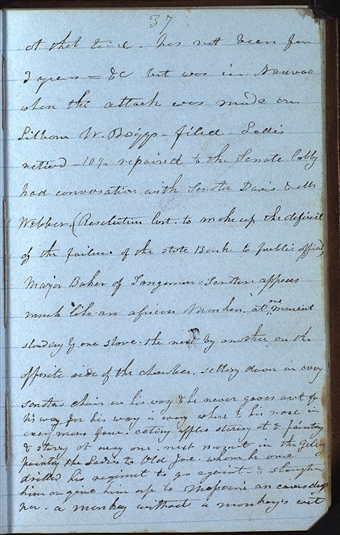 37
at that time - has not been for
2 years - &c but was in Nauvoo
when the attack was made on
Lilburn W. Boggs - filed - Ladies
retired - 10¼ repaired to the Senate lobby
had conversation with Senator Davis & Mr
Webber, (Resolution lost. to make up the deficit
of the failure of the state Bank to public officers,
Major Baker of Sangamon. Senator appears
much like an african Monkey, at one moment
standing by one stove. the next by another on the
opposite side of the chamber. setting down in every
Senators chair in his way & he never goes out of
his way for his way is every where & his nose in
every mans face. eating apples staring at & pointing
& staring at every one. next moment in the gallery
pointing the Ladies to Old Joe. whom he once
drilled his regiment to go against. & slaughter
him or give him up to Missouri
a monkey without a monkeys wit